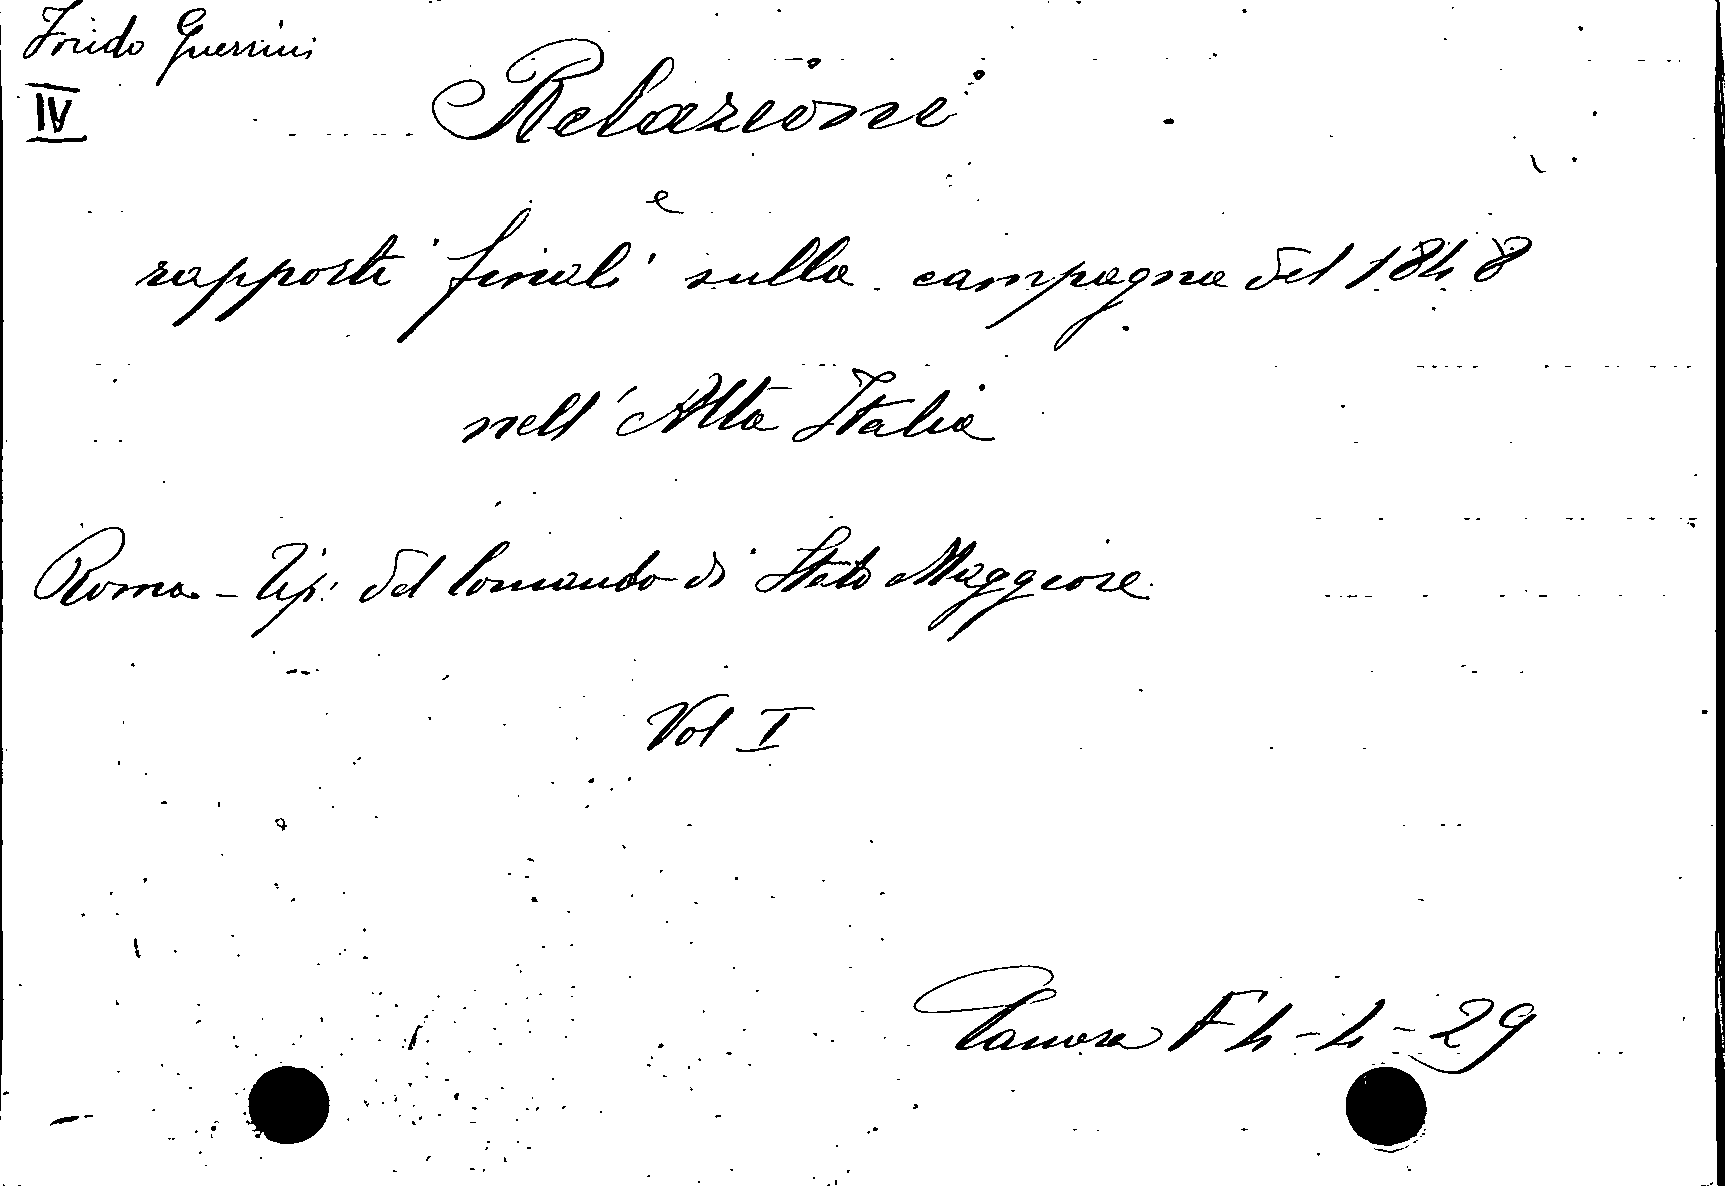 Fondo Guerrini
IV
Relazioni
e
rapporti finali sulla campagna del 1848
nell'Alta Italia
Roma - Tip. del Comando di Stato Maggiore.
Vol I
Camera F 4-4-29